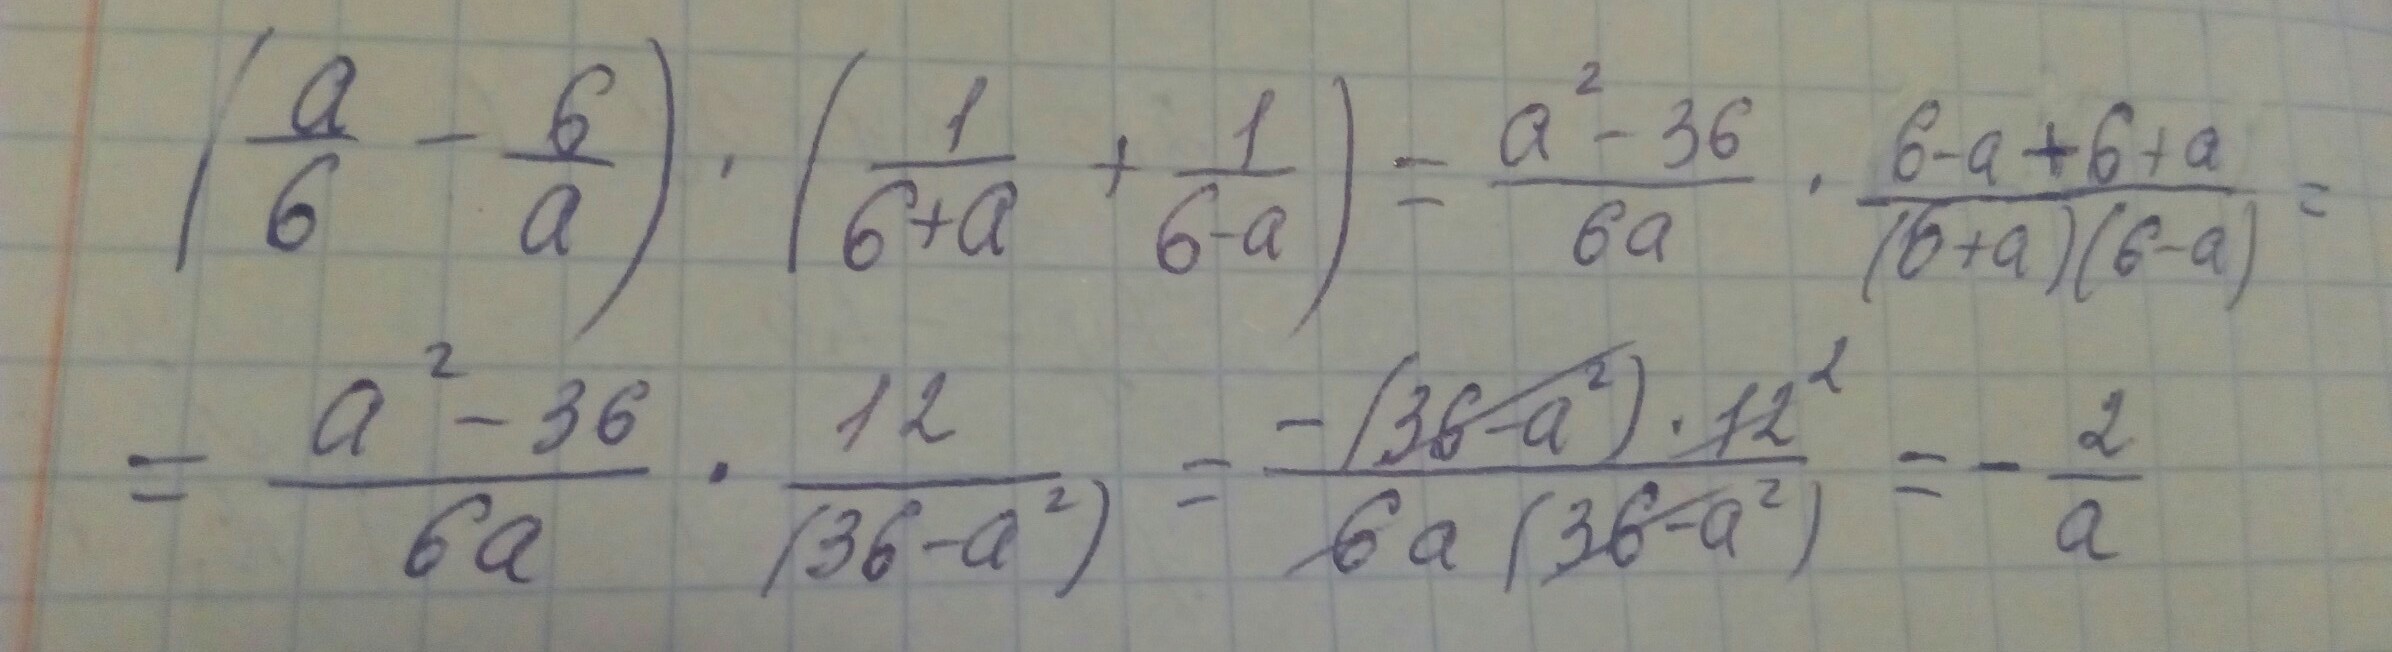 (a/6 - 6/a) · (1/(6+a) + 1/(6-a)) = (a² - 36)/(6a) · (6-a+6+a)/((6+a)(6-a)) =
= (a² - 36)/(6a) · 12/(36-a²) = (-(36-a²) · 12 ²)/(6a(36-a²)) = - 2/a